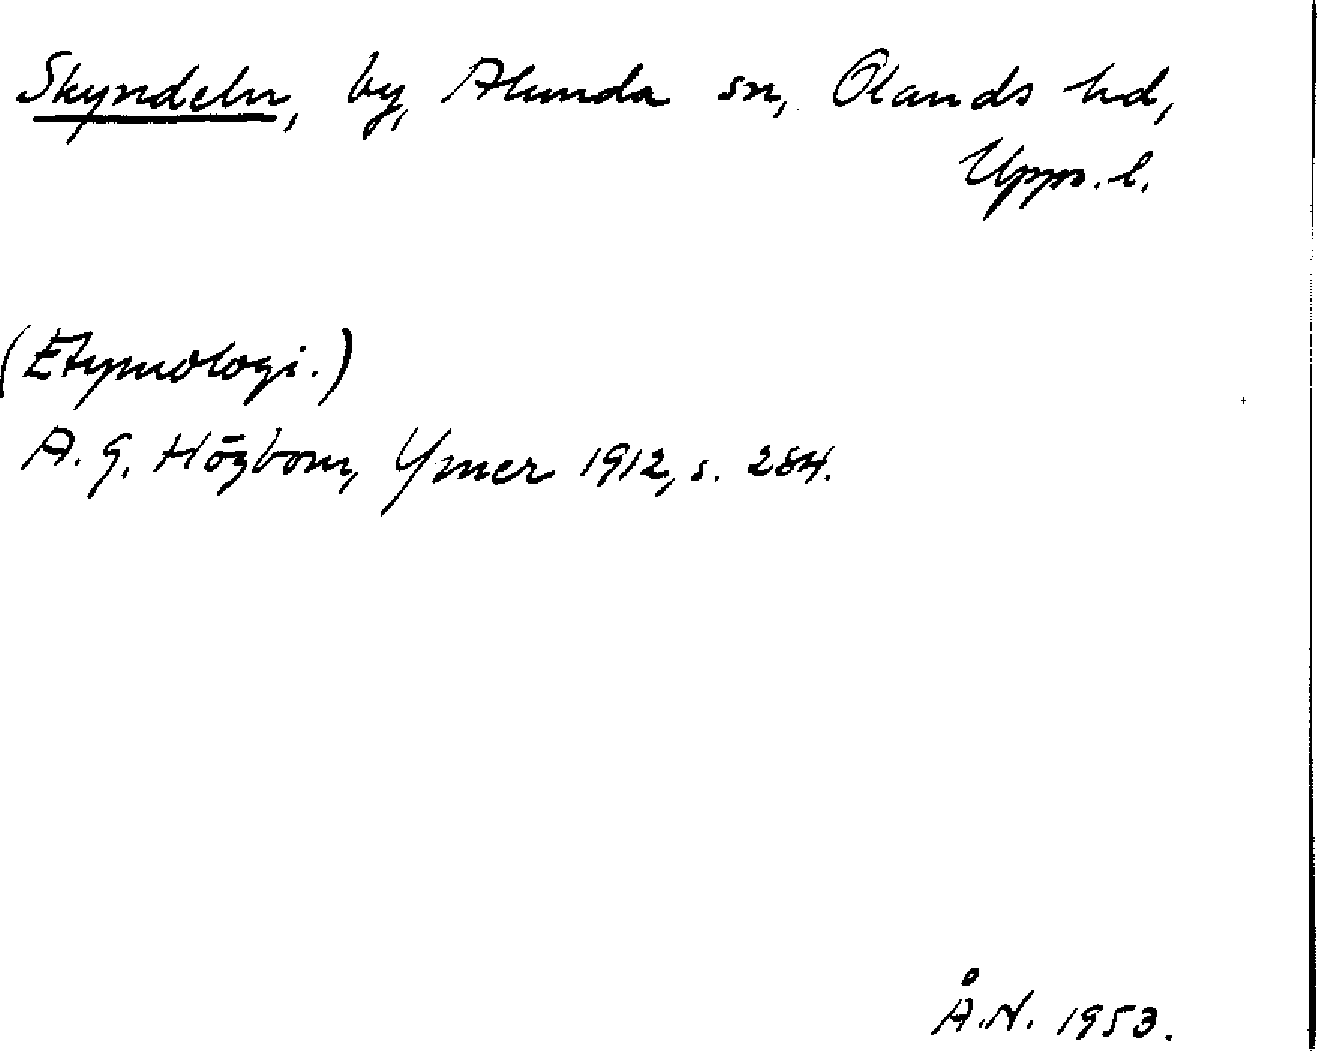 Skyndeln, by, Alunda sn, Olands hd,
Upps. l.
(Etymologi.)
A. G. Högbom, Ymer 1912, s. 284.
Å.N. 1953.